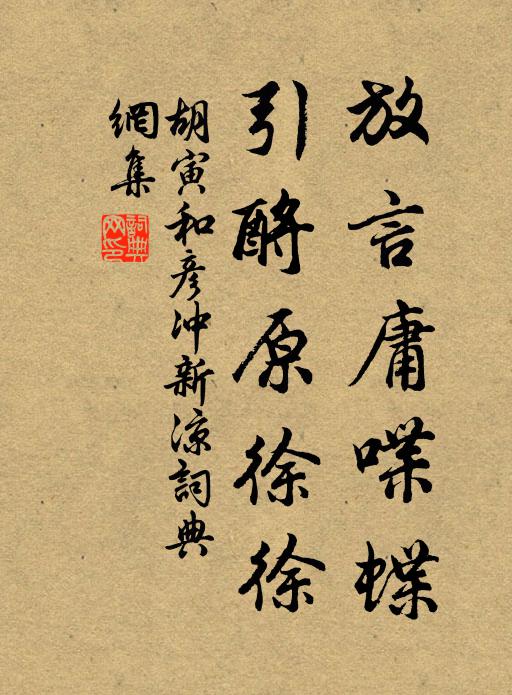 放言庸喋蝶
引酹原徐徐
胡寅和彦冲新凉詞典
網集
詞典网印